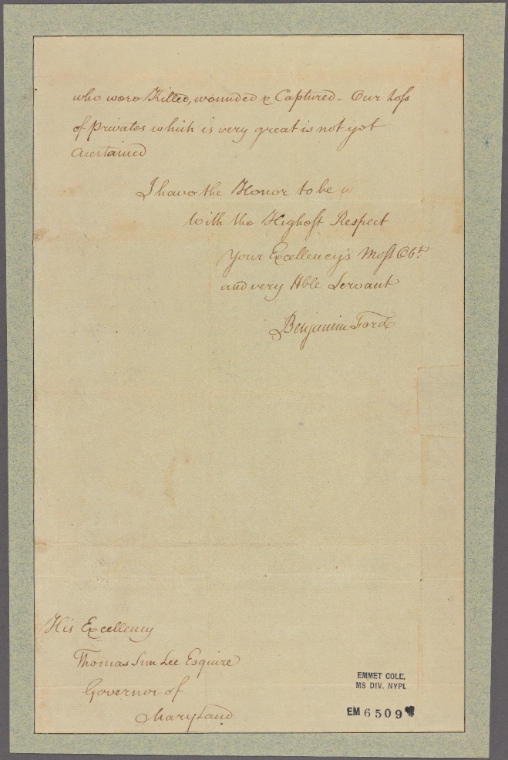 who were Killed, wounded & Captured - Our Loss
of privates which is very great is not yet
acertained
I have the Honor to be
With the Highest Respect
Your Excellency's Most Obt
and very Hble Servant
Benjamin Ford
His Excellency
Thomas Sim Lee Esquire
Governor of
Maryland
EMMET COLL.
MS DIV. NYPL
EM 6509